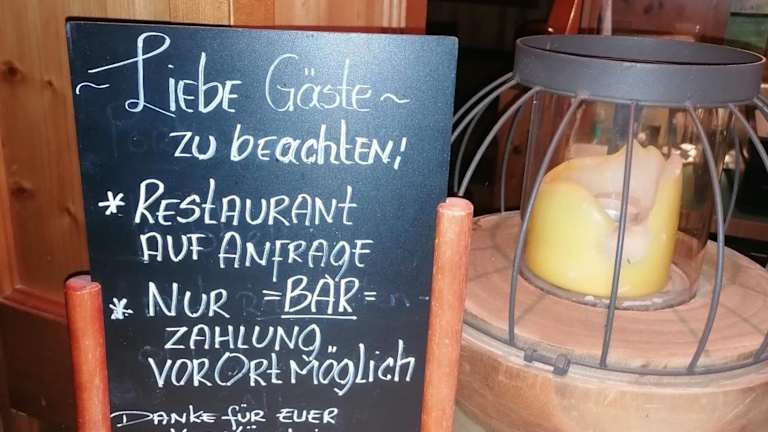 ~ Liebe Gäste ~
zu beachten!
* Restaurant
auf Anfrage
* Nur =BAR=
Zahlung
vor Ort möglich
Danke für Euer